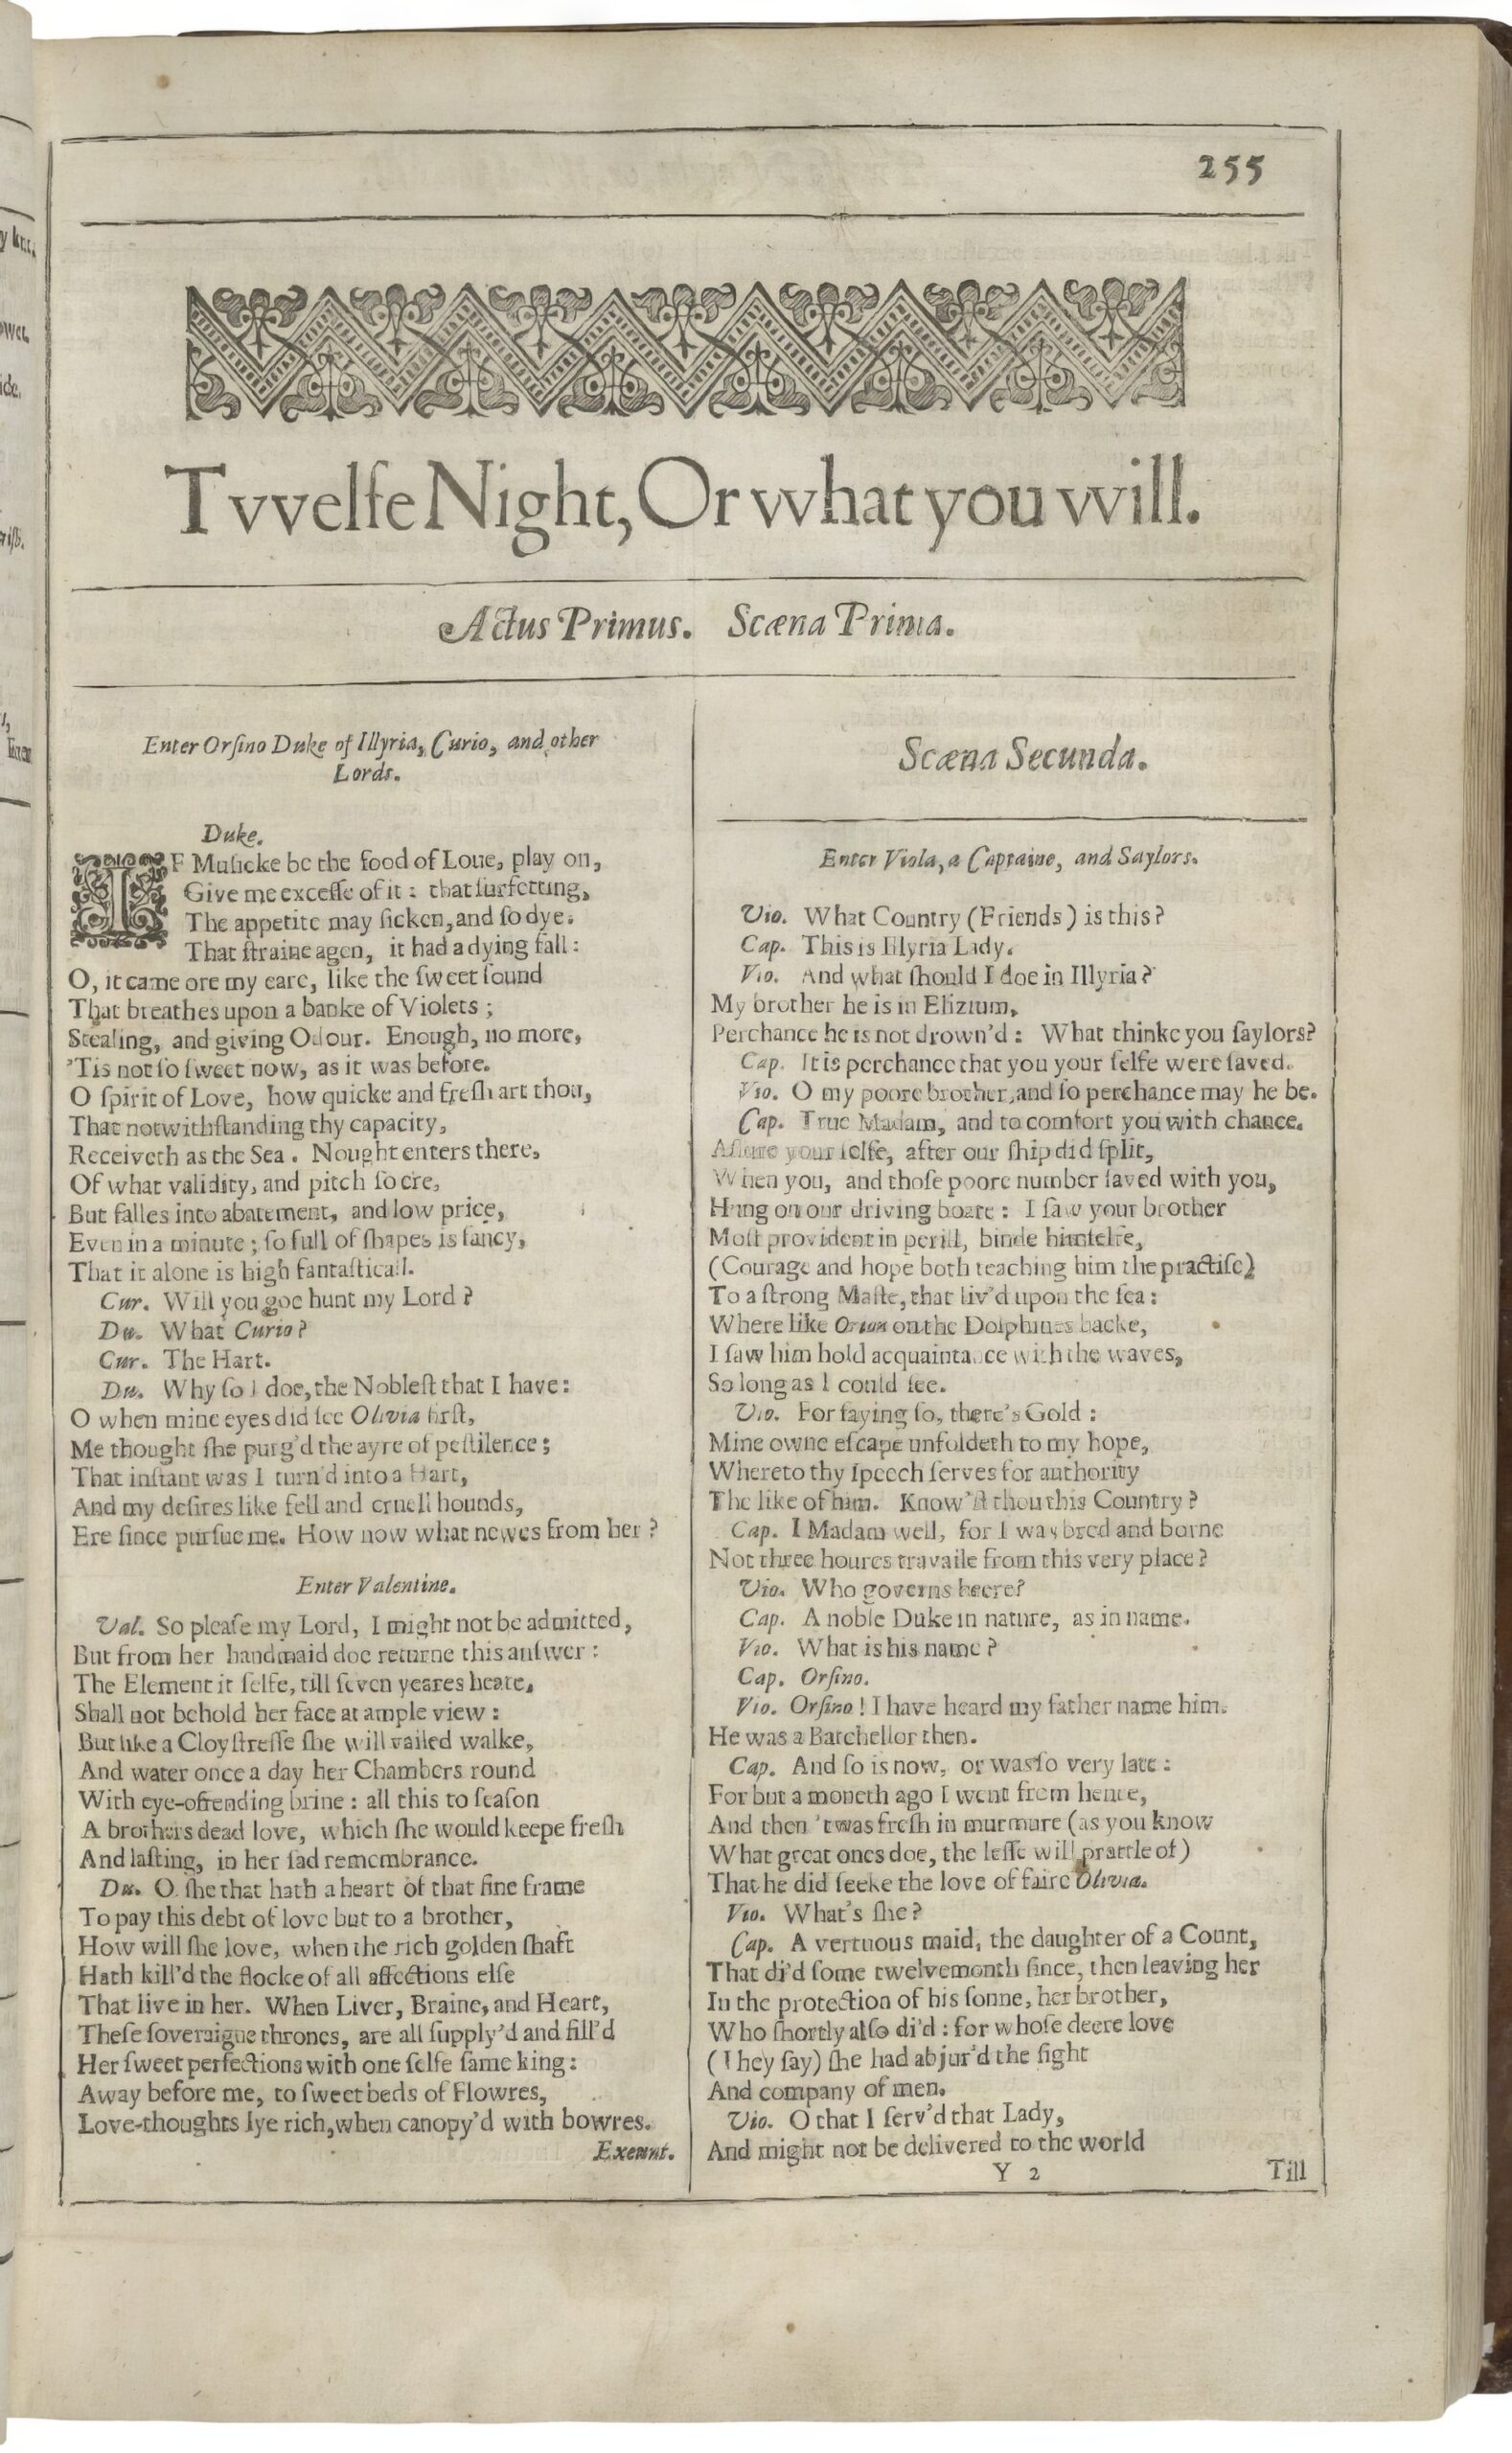 255
Tvvelfe Night, Or vvhat you vvill.
Actus Primus. Scæna Prima.
Enter Orſino Duke of Illyria, Curio, and other
Lords.
Duke.
IF Muſicke be the food of Loue, play on,
Give me exceſſe of it: that ſurfetting,
The appetite may ſicken, and ſo dye.
That ſtraine agen, it had a dying fall:
O, it came ore my eare, like the ſweet ſound
That breathes upon a banke of Violets;
Stealing, and giving Odour. Enough, no more,
'Tis not ſo ſweet now, as it was before.
O ſpirit of Love, how quicke and freſh art thou,
That notwithſtanding thy capacity,
Receiveth as the Sea. Nought enters there,
Of what validity, and pitch ſo ere,
But falles into abatement, and low price,
Even in a minute; ſo full of ſhapes is fancy,
That it alone is high fantaſticall.
Cur. Will you goe hunt my Lord?
Du. What Curio?
Cur. The Hart.
Du. Why ſo I doe, the Nobleſt that I have:
O when mine eyes did ſee Olivia firſt,
Me thought ſhe purg'd the ayre of peſtilence;
That inſtant was I turn'd into a Hart,
And my deſires like fell and cruell hounds,
Ere ſince purſue me. How now what newes from her?
Enter Valentine.
Val. So pleaſe my Lord, I might not be admitted,
But from her handmaid doe returne this anſwer:
The Element it ſelfe, till ſeven yeares heate,
Shall not behold her face at ample view:
But like a Cloyſtreſſe ſhe will vailed walke,
And water once a day her Chambers round
With eye-offending brine: all this to ſeaſon
A brothers dead love, which ſhe would keepe freſh
And laſting, in her ſad remembrance.
Du. O ſhe that hath a heart of that fine frame
To pay this debt of love but to a brother,
How will ſhe love, when the rich golden ſhaft
Hath kill'd the flocke of all affections elſe
That live in her. When Liver, Braine, and Heart,
Theſe ſoveraigne thrones, are all ſupply'd and fill'd
Her ſweet perfections with one ſelfe ſame king:
Away before me, to ſweet beds of Flowres,
Love-thoughts lye rich, when canopy'd with bowres.
Exeunt.
Scæna Secunda.
Enter Viola, a Captaine, and Saylors.
Vio. What Country (Friends) is this?
Cap. This is Illyria Lady.
Vio. And what ſhould I doe in Illyria?
My brother he is in Elizium,
Perchance he is not drown'd: What thinke you ſaylors?
Cap. It is perchance that you your ſelfe were ſaved.
Vio. O my poore brother, and ſo perchance may he be.
Cap. True Madam, and to comfort you with chance.
Aſſure your ſelfe, after our ſhip did ſplit,
When you, and thoſe poore number ſaved with you,
Hung on our driving boate: I ſaw your brother
Moſt provident in perill, binde himſelfe,
(Courage and hope both teaching him the practiſe)
To a ſtrong Maſte, that liv'd upon the ſea:
Where like Orion on the Dolphines backe,
I ſaw him hold acquaintance with the waves,
So long as I could ſee.
Vio. For ſaying ſo, there's Gold:
Mine owne eſcape unfoldeth to my hope,
Whereto thy ſpeech ſerves for authority
The like of him. Know'ſt thou this Country?
Cap. I Madam well, for I was bred and borne
Not three houres travaile from this very place?
Vio. Who governs heere?
Cap. A noble Duke in nature, as in name.
Vio. What is his name?
Cap. Orſino.
Vio. Orſino! I have heard my father name him.
He was a Batchellor then.
Cap. And ſo is now, or was ſo very late:
For but a moneth ago I went from hence,
And then 'twas freſh in murmure (as you know
What great ones doe, the leſſe will prattle of)
That he did ſeeke the love of faire Olivia.
Vio. What's ſhe?
Cap. A vertuous maid, the daughter of a Count,
That di'd ſome twelvemonth ſince, then leaving her
In the protection of his ſonne, her brother,
Who ſhortly alſo di'd: for whoſe deere love
(They ſay) ſhe had abjur'd the ſight
And company of men.
Vio. O that I ſerv'd that Lady,
And might not be delivered to the world
Y 2 Till